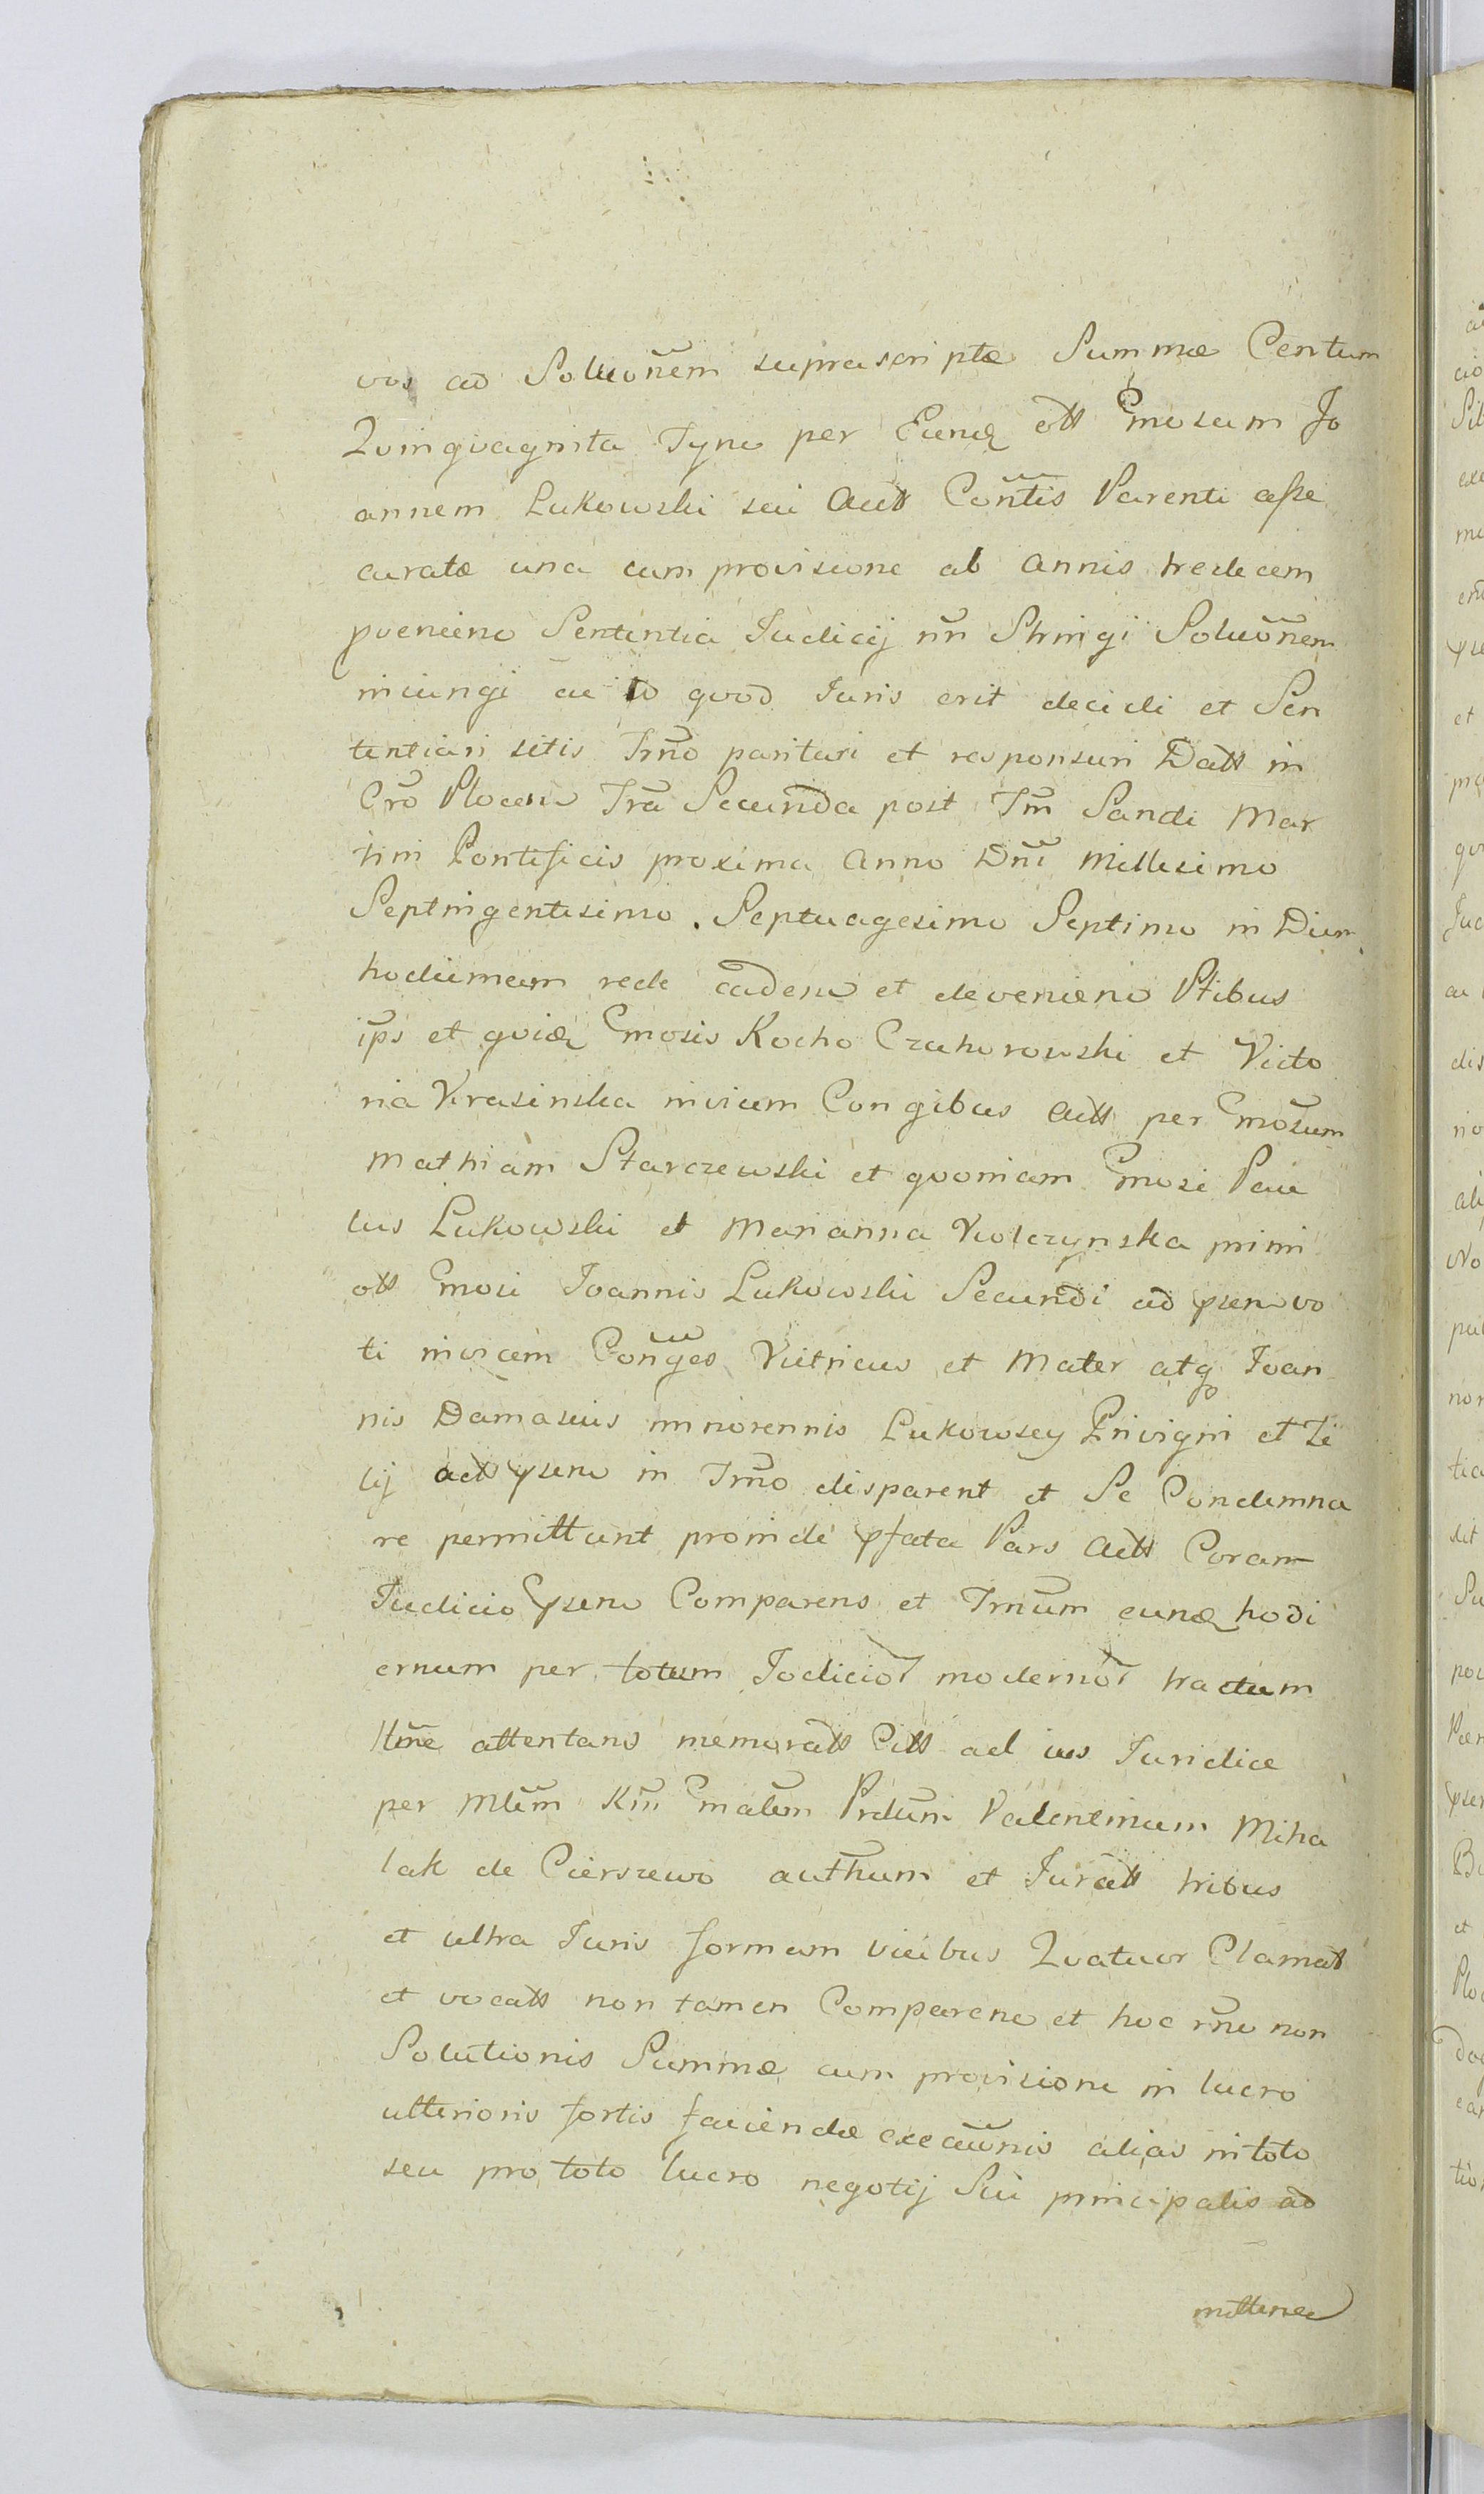 vos ad Soluōnem suprascriptæ Summæ Centum
Quinquaginta Tynu per Eunq̃ ott Gnrosum Jo
annem Lukowski seu Actt Contis Parenti asse
curatæ una cum provisione ab annis tredecem
pveniene Sententia Judicij nn Stringi Soluōnem
iniungi ac id quod Juris erit decidi et Sen
tentiari sitis Trno parituri et responsuri Datt in
Cro Plocen Fra Secunda post Fm Sancti Mar
tini Pontificis proxima Anno Dni Millesimo
Septingentesimo. Septuagesimo Septimo in Diem
hodiernam recte caden et devenien Ptibus
ips et quidq Gnrosis Rocho Czahorowski et Victo
ria Krasinska invicem Congibus Actt per Gnrosum
Mathiam Starczewski et quoniam Gnrosi Pau
lus Lukowski et Marianna Wolczynska primi
ott Gnrosi Joannis Lukowski Secundi ad psen vo
ti invicem Conges Vitricus et Mater atq Joan
nis Damascus minorennis Lukowscy Privigni et Fi
lij ad psen in Trno disparent et Se Condemna
re permittunt proinde pfata Pars Actt Coram
Judicio psen Comparens et Trnum eunq hodi
ernum per totum Judicior modernor tractum
ltme attentans memoratt Citt ad ius Juridice
per Mltm Rni Gnralem Prdum Valentinum Miha
lak de Cierszewo authum et Juratt tribus
et ultra Juris formam vicibus Quatuor Clamatt
et vocatt non tamen Comparene et hoc rne non
Solutionis Summæ cum provisione in lucro
ulterioris fortis faciendæ execuōnis alias in toto
seu pro toto lucro negotij Sui principalis ad
mittenee